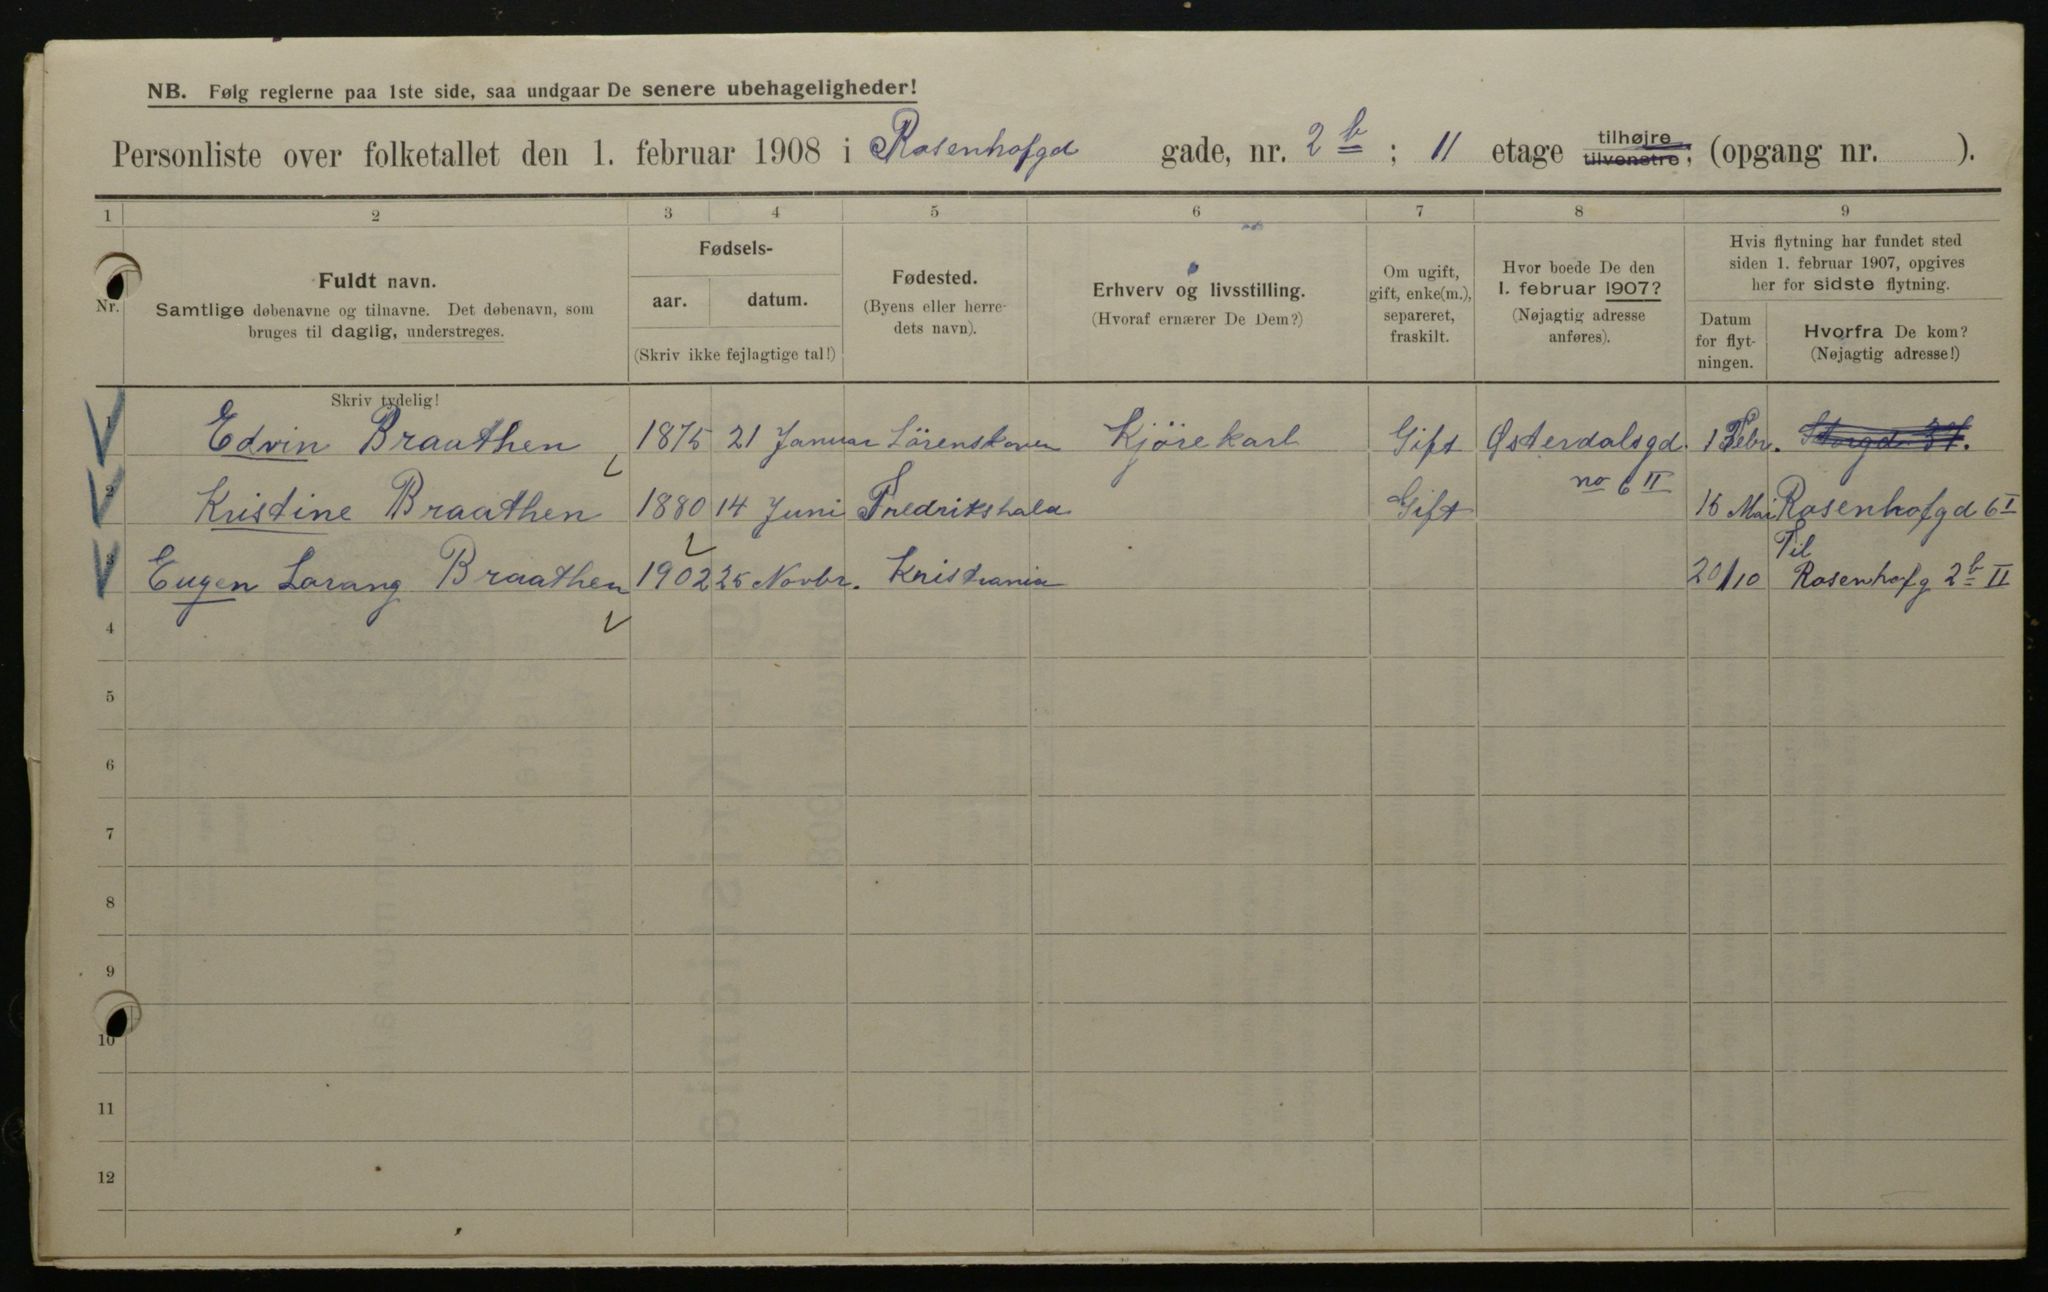 NB. Følg reglerne paa 1ste side, saa undgaar De senere ubehageligheder!
Personliste over folketallet den 1. februar 1908 i Rosenhofgd gade, nr. 2 b ; 11 etage tilhøjre tilvenstre; (opgang nr. ).
1 2 3 4 5 6 7 8 9
Nr.
Fuldt navn.
Samtlige døbenavne og tilnavne. Det døbenavn, som
bruges til daglig, understreges.
Skriv tydelig!
Fødsels-
aar. datum.
(Skriv ikke fejlagtige tal!)
Fødested.
(Byens eller herre-
dets navn).
Erhverv og livsstilling.
(Hvoraf ernærer De Dem?)
Om ugift,
gift, enke(m.),
separeret,
fraskilt.
Hvor boede De den
1. februar 1907?
(Nøjagtig adresse
anføres).
Hvis flytning har fundet sted
siden 1. februar 1907, opgives
her for sidste flytning.
Datum
for flyt-
ningen.
Hvorfra De kom?
(Nøjagtig adresse!)
1 Edvin Braathen 1875 21 Januar Lörenskoven Kjörekarl Gift Østerdalsgd. 1 Febr. Storgd 37.
no 6 II
2 Kristine Braathen 1880 14 Juni Fredrikshald Gift 15 Mai Rosenhofgd 6 I
Til
3 Eugen Lorang Braathen 1902 25 Novbr. Kristiania 20/10 Rosenhofg 2 b II
4
5
6
7
8
9
10
11
12